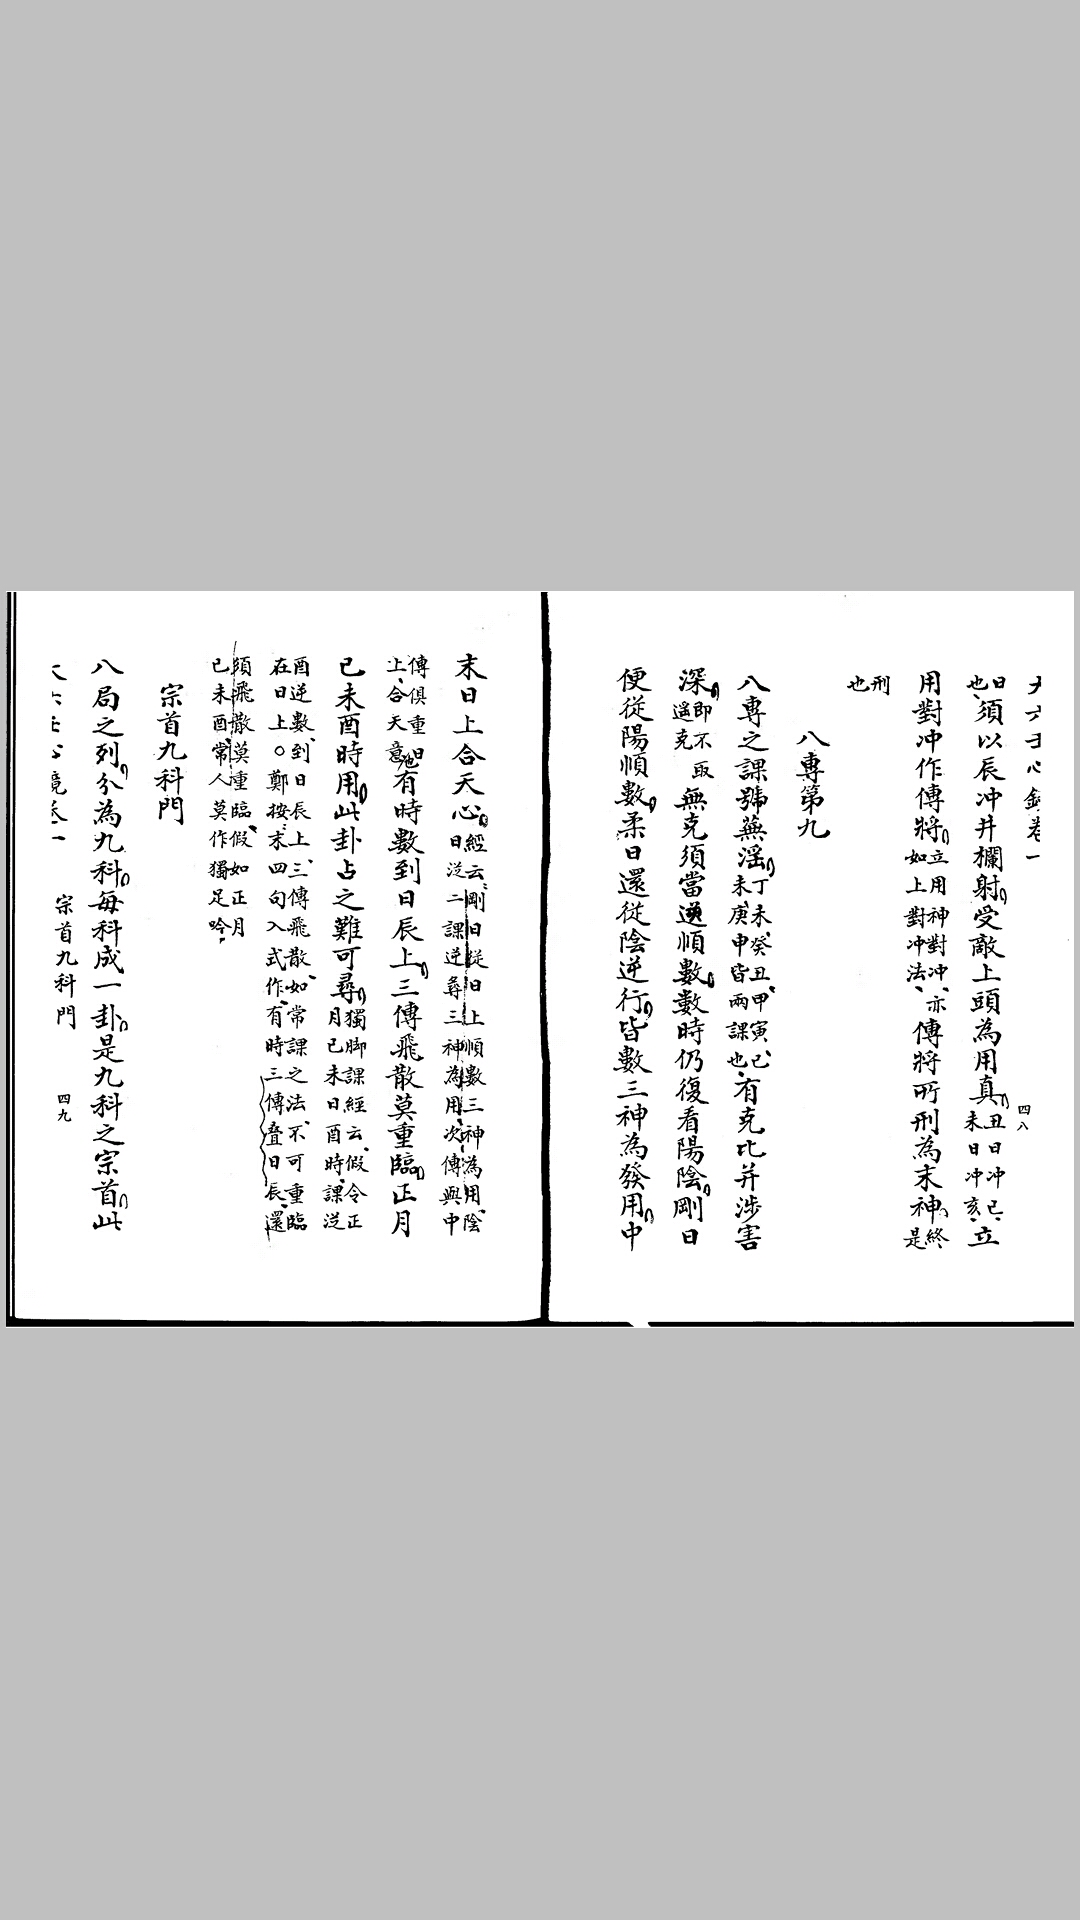 大六壬心鏡卷一
四八
日也須以辰冲井欄射受敵上頭為用真丑日冲巳未日冲亥立
用對冲作傳將立用神對冲亦如上對冲法傳將所刑為末神終是
刑也
八專第九
八專之課號蕪淫丁未癸丑甲寅己未庚申皆兩課也有克比并涉害
深即不取遥克無克須當逆順數數時仍復看陽陰剛日
便從陽順數柔日還從陰逆行皆數三神為發用中
末日上合天心經云剛日從日上順數三神為用陰日從二課逆尋三神為用次傳與中
傳俱重日上合天意也有時數到日辰上三傳飛散莫重臨正月
己未酉時用此卦占之難可尋獨脚課經云假令正月己未日酉時課從
酉逆數到日辰上三傳飛散如常課之法不可重臨在日上○鄭按末四句入式作有時三傳叠日辰還
須飛散莫重臨假如正月己未酉常人莫作獨足吟
宗首九科門
八局之列分為九科每科成一卦是九科之宗首此
宗首九科門
四九